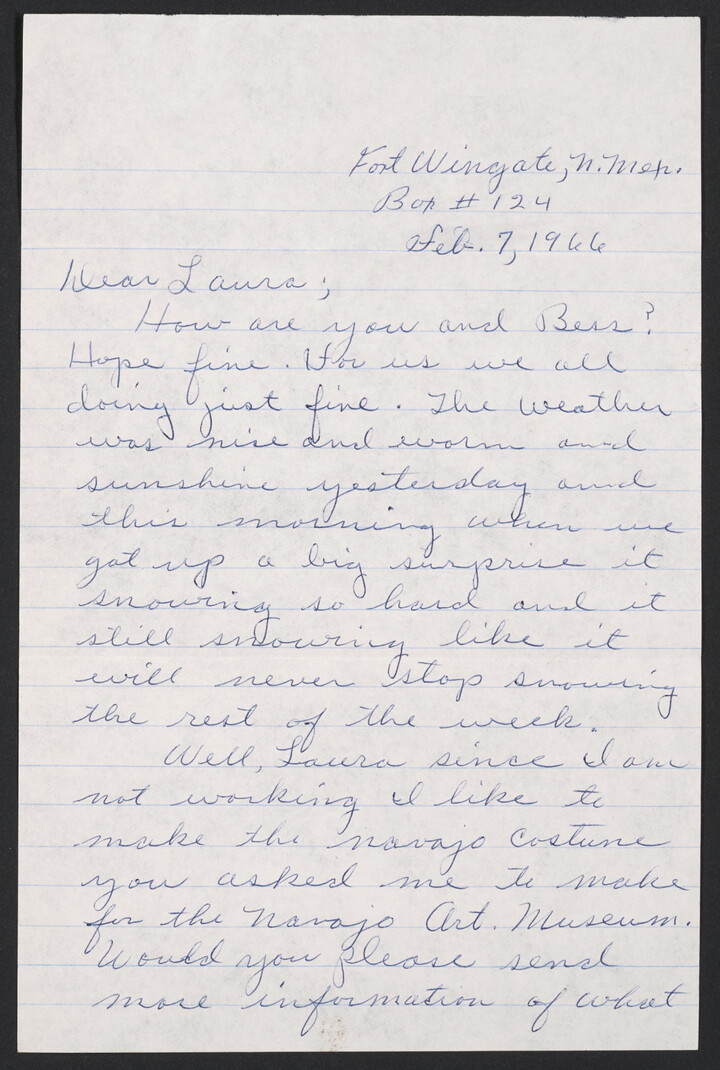 Fort Wingate, N. Mex.
Box # 124
Feb. 7, 1966
Dear Laura;
How are you and Bess?
Hope fine. For us we all
doing just fine. The weather
was nise and worm and
sunshine yesterday and
this morning when we
got up a big surprise it
snowing so hard and it
still snowing like it
will never stop snowing
the rest of the week.
Well, Laura since I am
not working I like to
make the navajo costume
you asked me to make
for the Navajo Art. Museum.
Would you please send
more information of what